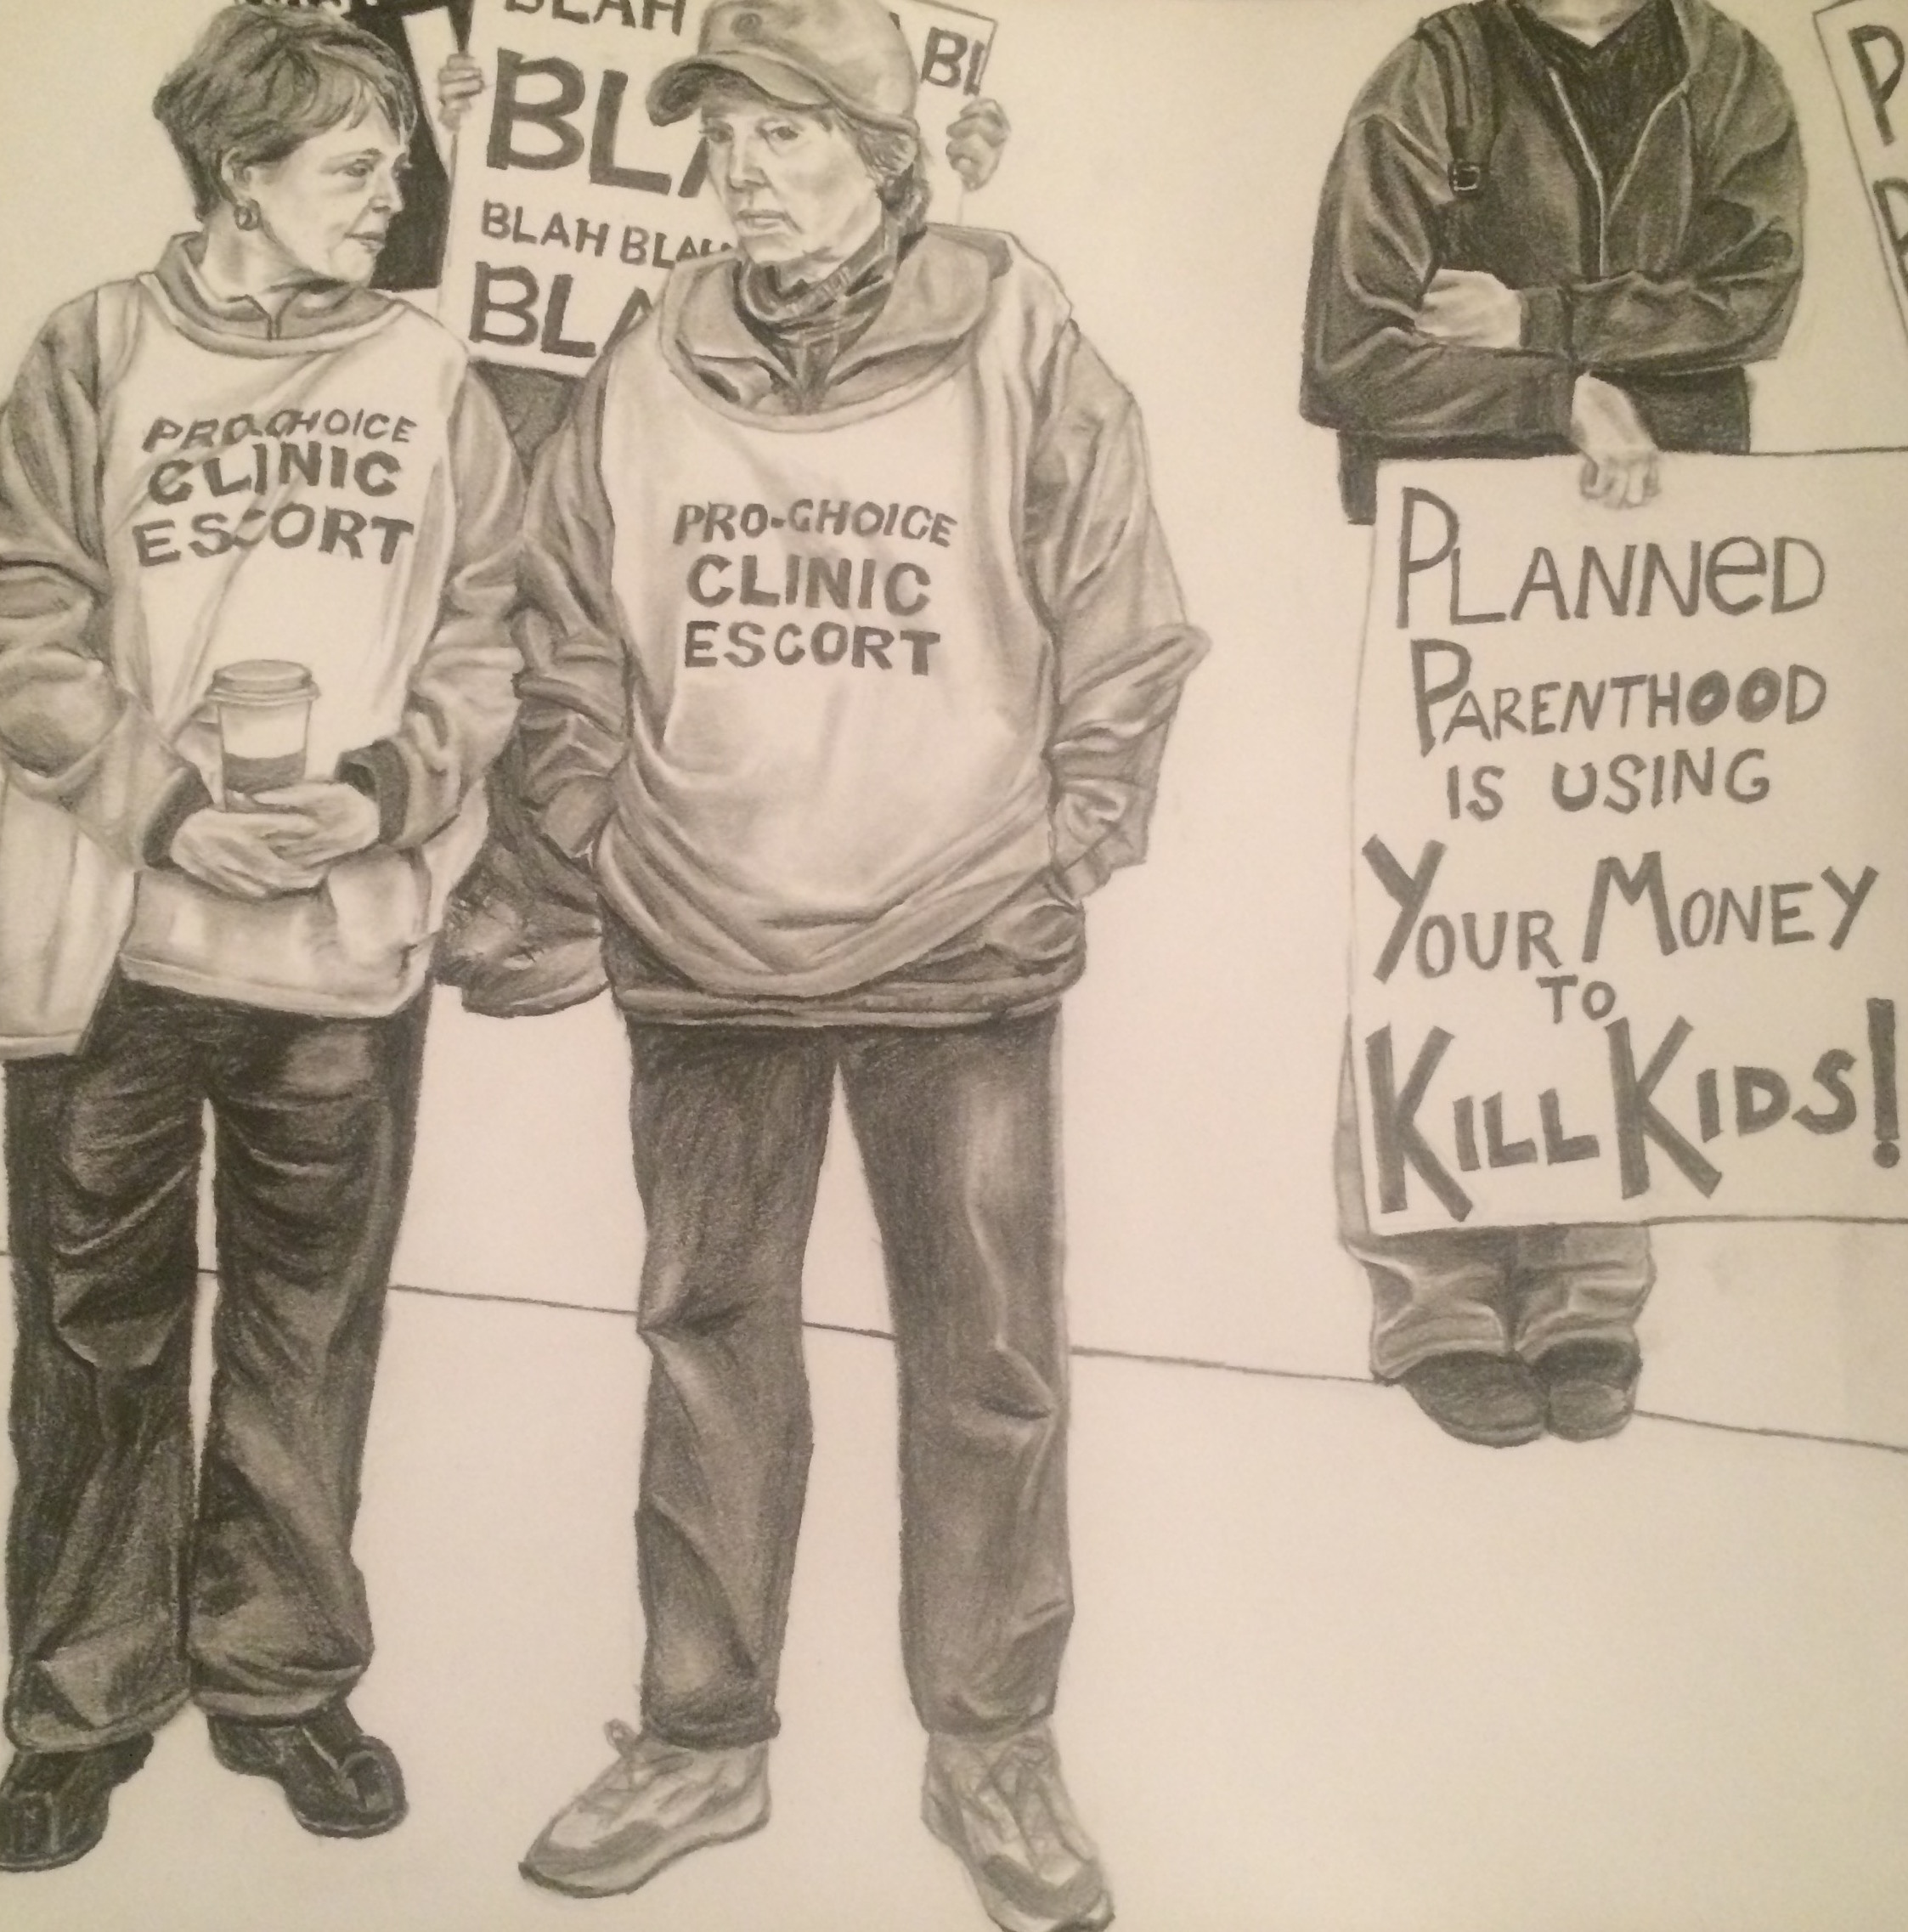 BLAH
BLA
BLAH BLAH
BLA
BL
PRO-CHOICE
CLINIC
ESCORT
PRO-CHOICE
CLINIC
ESCORT
PLANNeD
PARENTHOOD
IS USING
YOUR MONEY
TO
KILL KIDS!
P
P